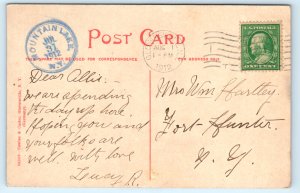 POST CARD
THIS SPACE MAY BE USED FOR CORRESPONDENCE
MOUNTAIN LAKE
JUL
31
1912
N.Y.
AUG 1
1912
U.S. POSTAGE
ONE CENT
Dear Allie:-
we are spending
the day up here.
Hoping you and
your folks are
well with love
R.
Mrs Wm Hartley
Fort Hunter
N. Y.